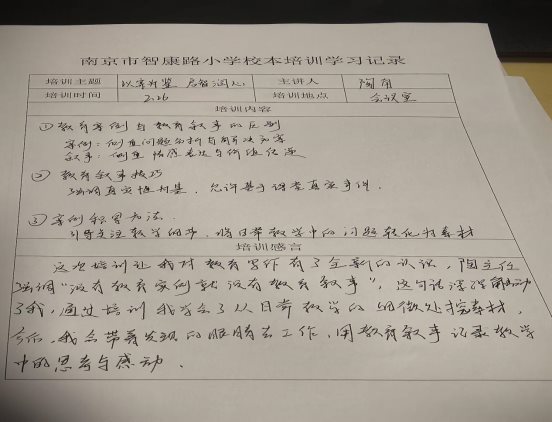 南京市智康路小学校本培训学习记录
培训主题 以案为鉴 启智润心 主讲人 陶前
培训时间 2.26 培训地点 会议室
培训内容
① 教育案例与教育叙事的区别
案例：侧重问题分析与解决方案
叙事：侧重情感表达与价值传递
② 教育叙事技巧
强调真实性为基，允许基于课堂真实事件．
③ 案例积累方法．
引导关注教学细节，将日常教学中的问题转化为素材
培训感言
这次培训让我对教育写作有了全新的认识，陶主任
强调“没有教育案例就没有教育叙事”，这句话深深触动
了我，通过培训我学会了从日常教学的细微处挖素材，
今后，我会带着发现的眼睛去工作，用教育叙事记录教学
中的思考与感动．